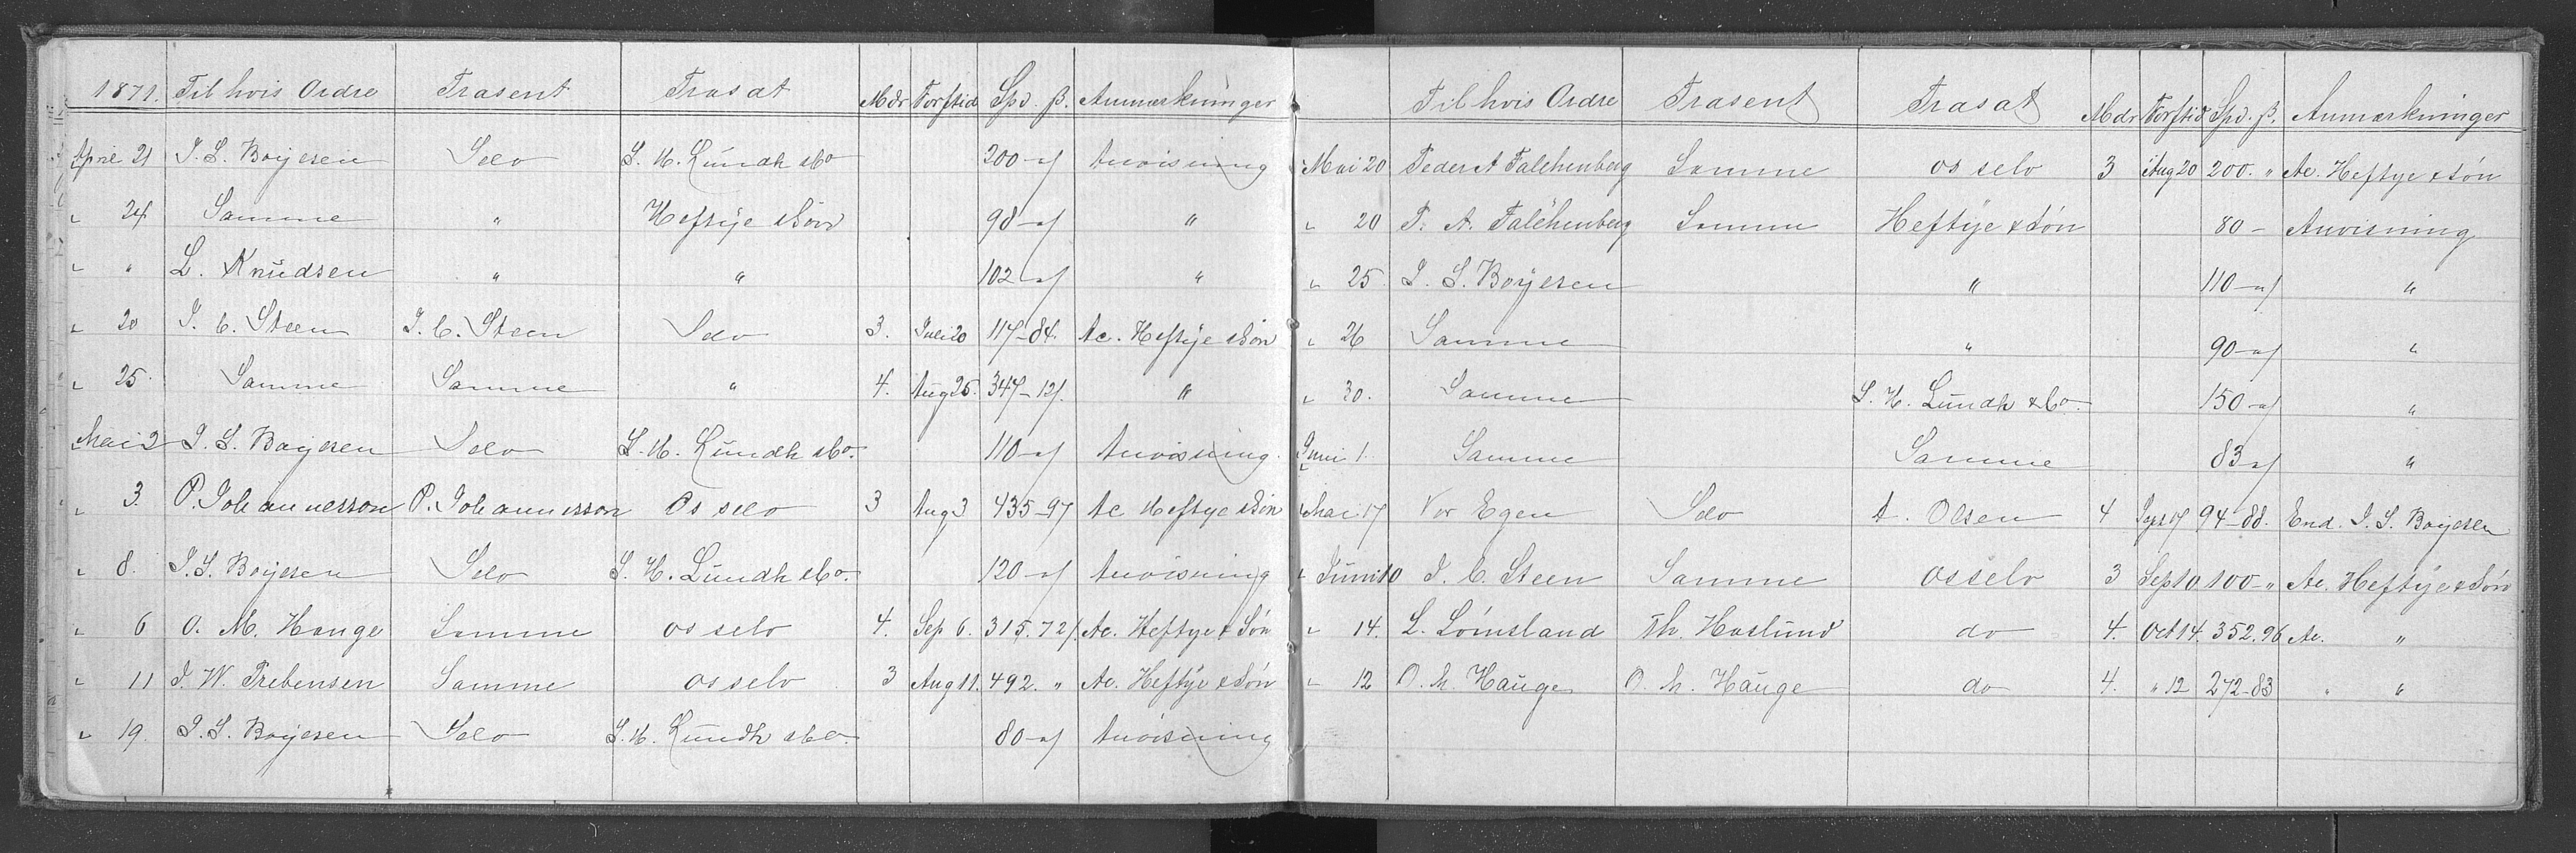 1871. Til hvis Ordre Trasent Trasat Mdr Forftid Spd. β. Anmærkninger
April 21 I. S. Boyesen Selv S. H. Lundh & Co 200 - " Anvisning
" 24 Samme " Heftye & Søn 98 - " "
" " L. Knudsen " " 102 - " "
" 20 I. C. Steen I. C. Steen Selv 3. Juli 20 117 - 84. Ac. Heftye & Søn
" 25. Samme Samme " 4. Aug 25. 347 - 12. "
Mai 2 I. S. Boyesen Selv S. H. Lundh & Co. 110 - " Anvisning.
" 3. P. Johannesson P. Johannesson Os selv 3 Aug 3 435 - 97 Ac Heftye & Søn
" 8. I. S. Boyesen Selv S. H. Lundh & Co. 120 - " Anvisning
" 6 O. M. Hauge Samme os selv 4. Sep 6. 315. 72. Ac. Heftye & Søn
" 11 I. W. Trebensen Samme os selv 3 Aug 11. 492. " Ac. Heftye & Søn
" 19. I. S. Boyesen Selv S. H. Lundh & Co. 80 - " Anvisning
Til hvis Ordre Trasent Trasat Mdr Forftid Spd. β. Anmærkninger
Mai 20 Peder A Falchenberg Samme os selv 3 Aug 20 200. " Ac. Heftye & Søn
" 20 P. A. Falchenberg Samme Heftye & Søn 80 - Anvisning
" 25. I. S. Boyesen " 110 - " "
" 26 Samme " 90 - " "
" 30. Samme S. H. Lundh & Co. 150 - " "
Juni 1. Samme Samme 83 - " "
Mai 17 Vor Egen Selv A. Olsen 4 Sept 17 94 - 88. End. I. S. Boyesen
" Juni 10 I. C. Steen Samme os selv 3 Sep 10 100 - " Ac. Heftye & Søn
" 14. L. Lømsland Th. Haslund do 4. Oct 14. 352. 96 Ac. "
" 12 O. M. Hauge O. M. Hauge do 4. " 12 272 - 83 " "